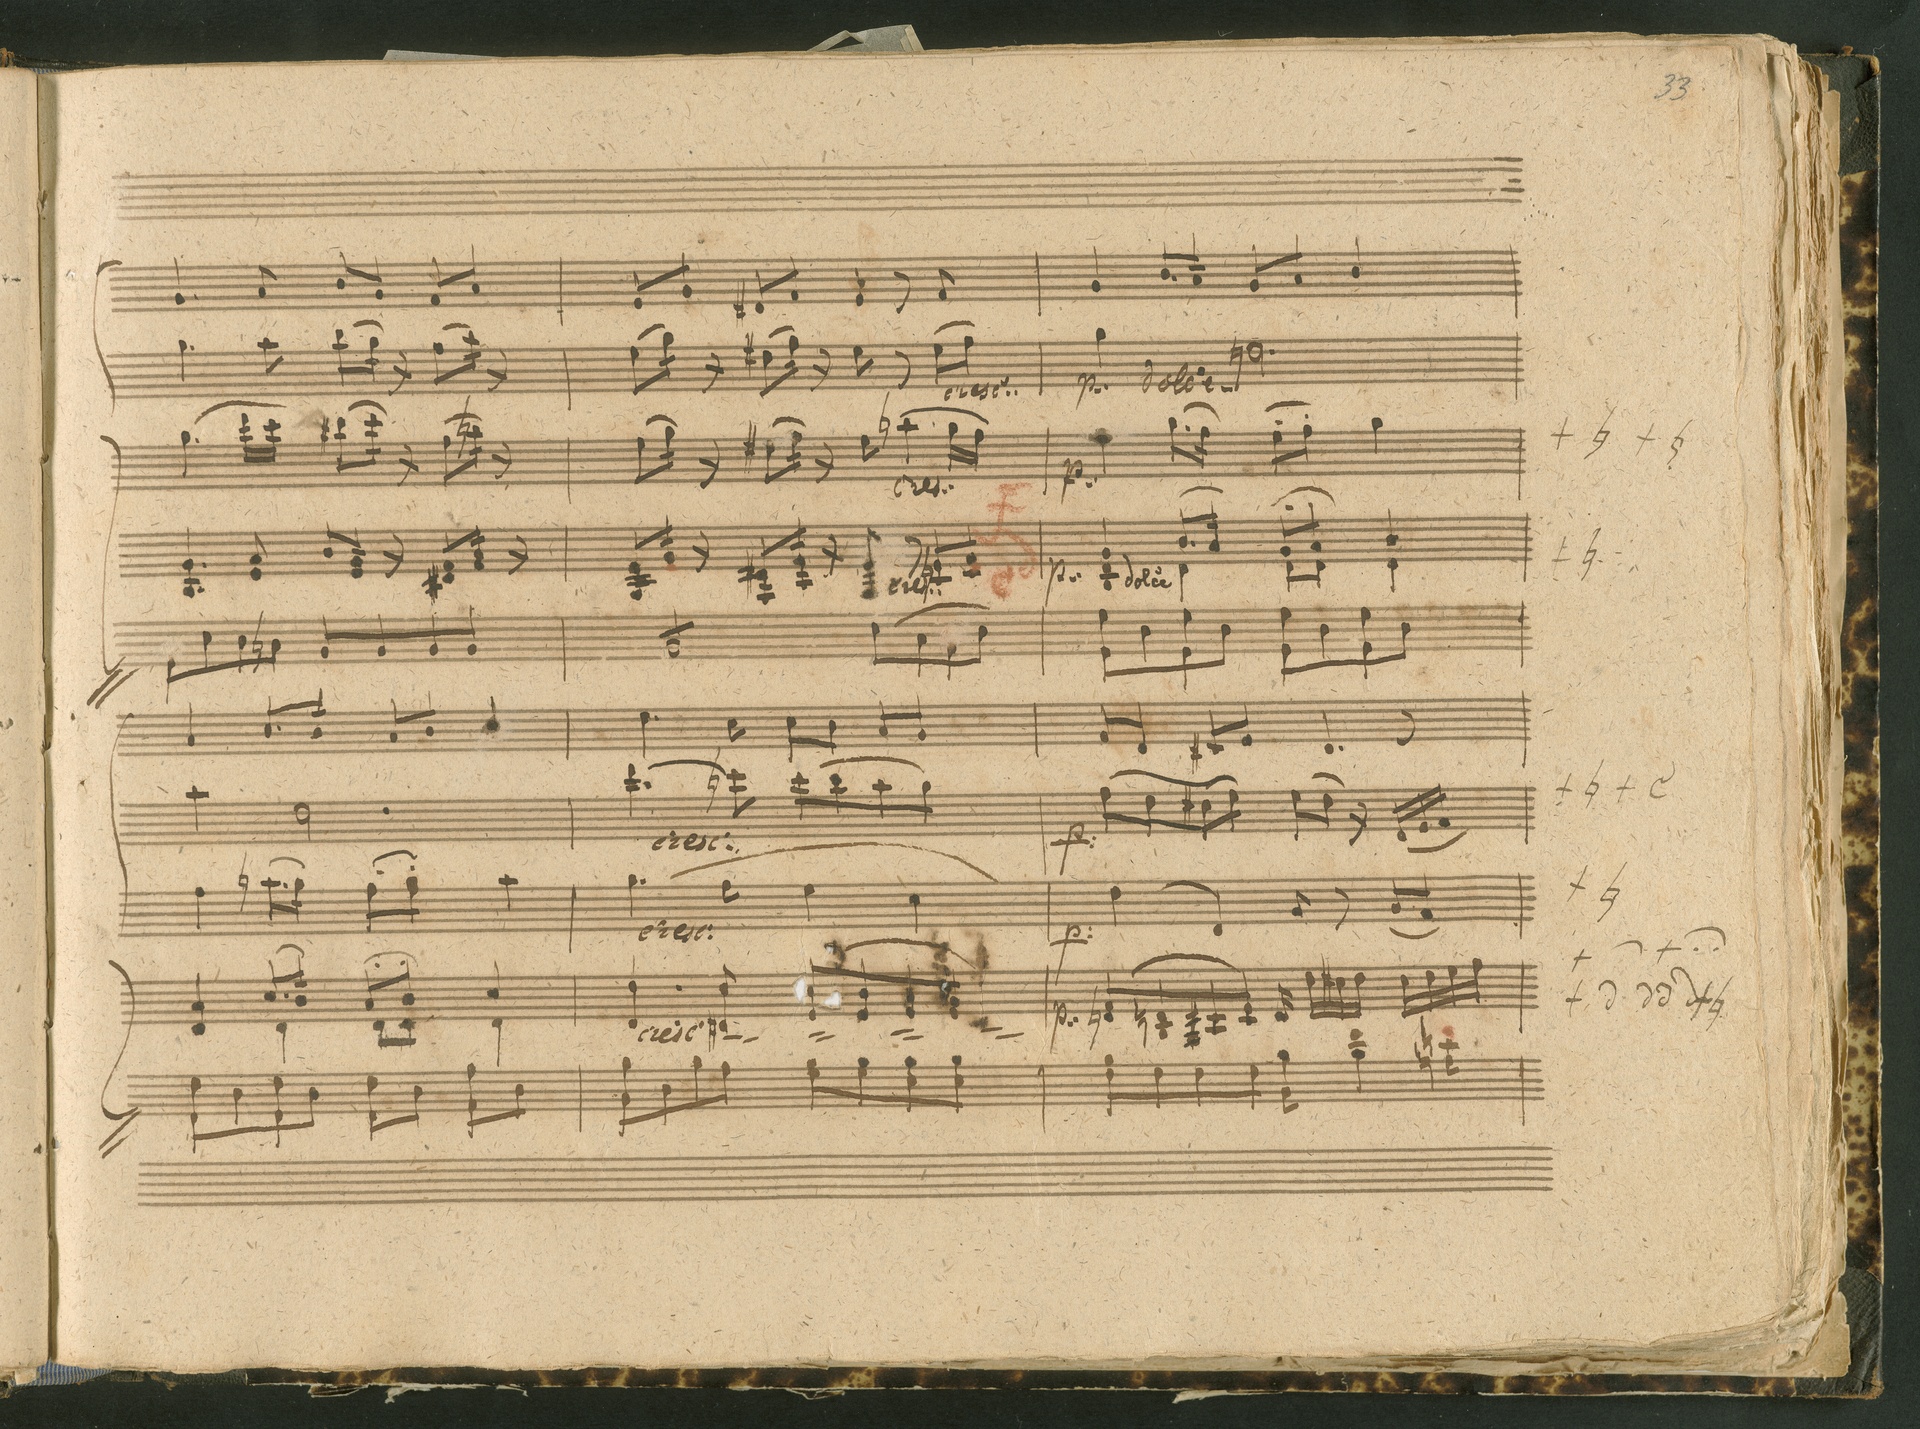 33
cresc:.
p:. dolce
cres:.
p:.
cres:.
p:. dolce
cresc:.
p:
cresc:
p:
cresc:
p:.